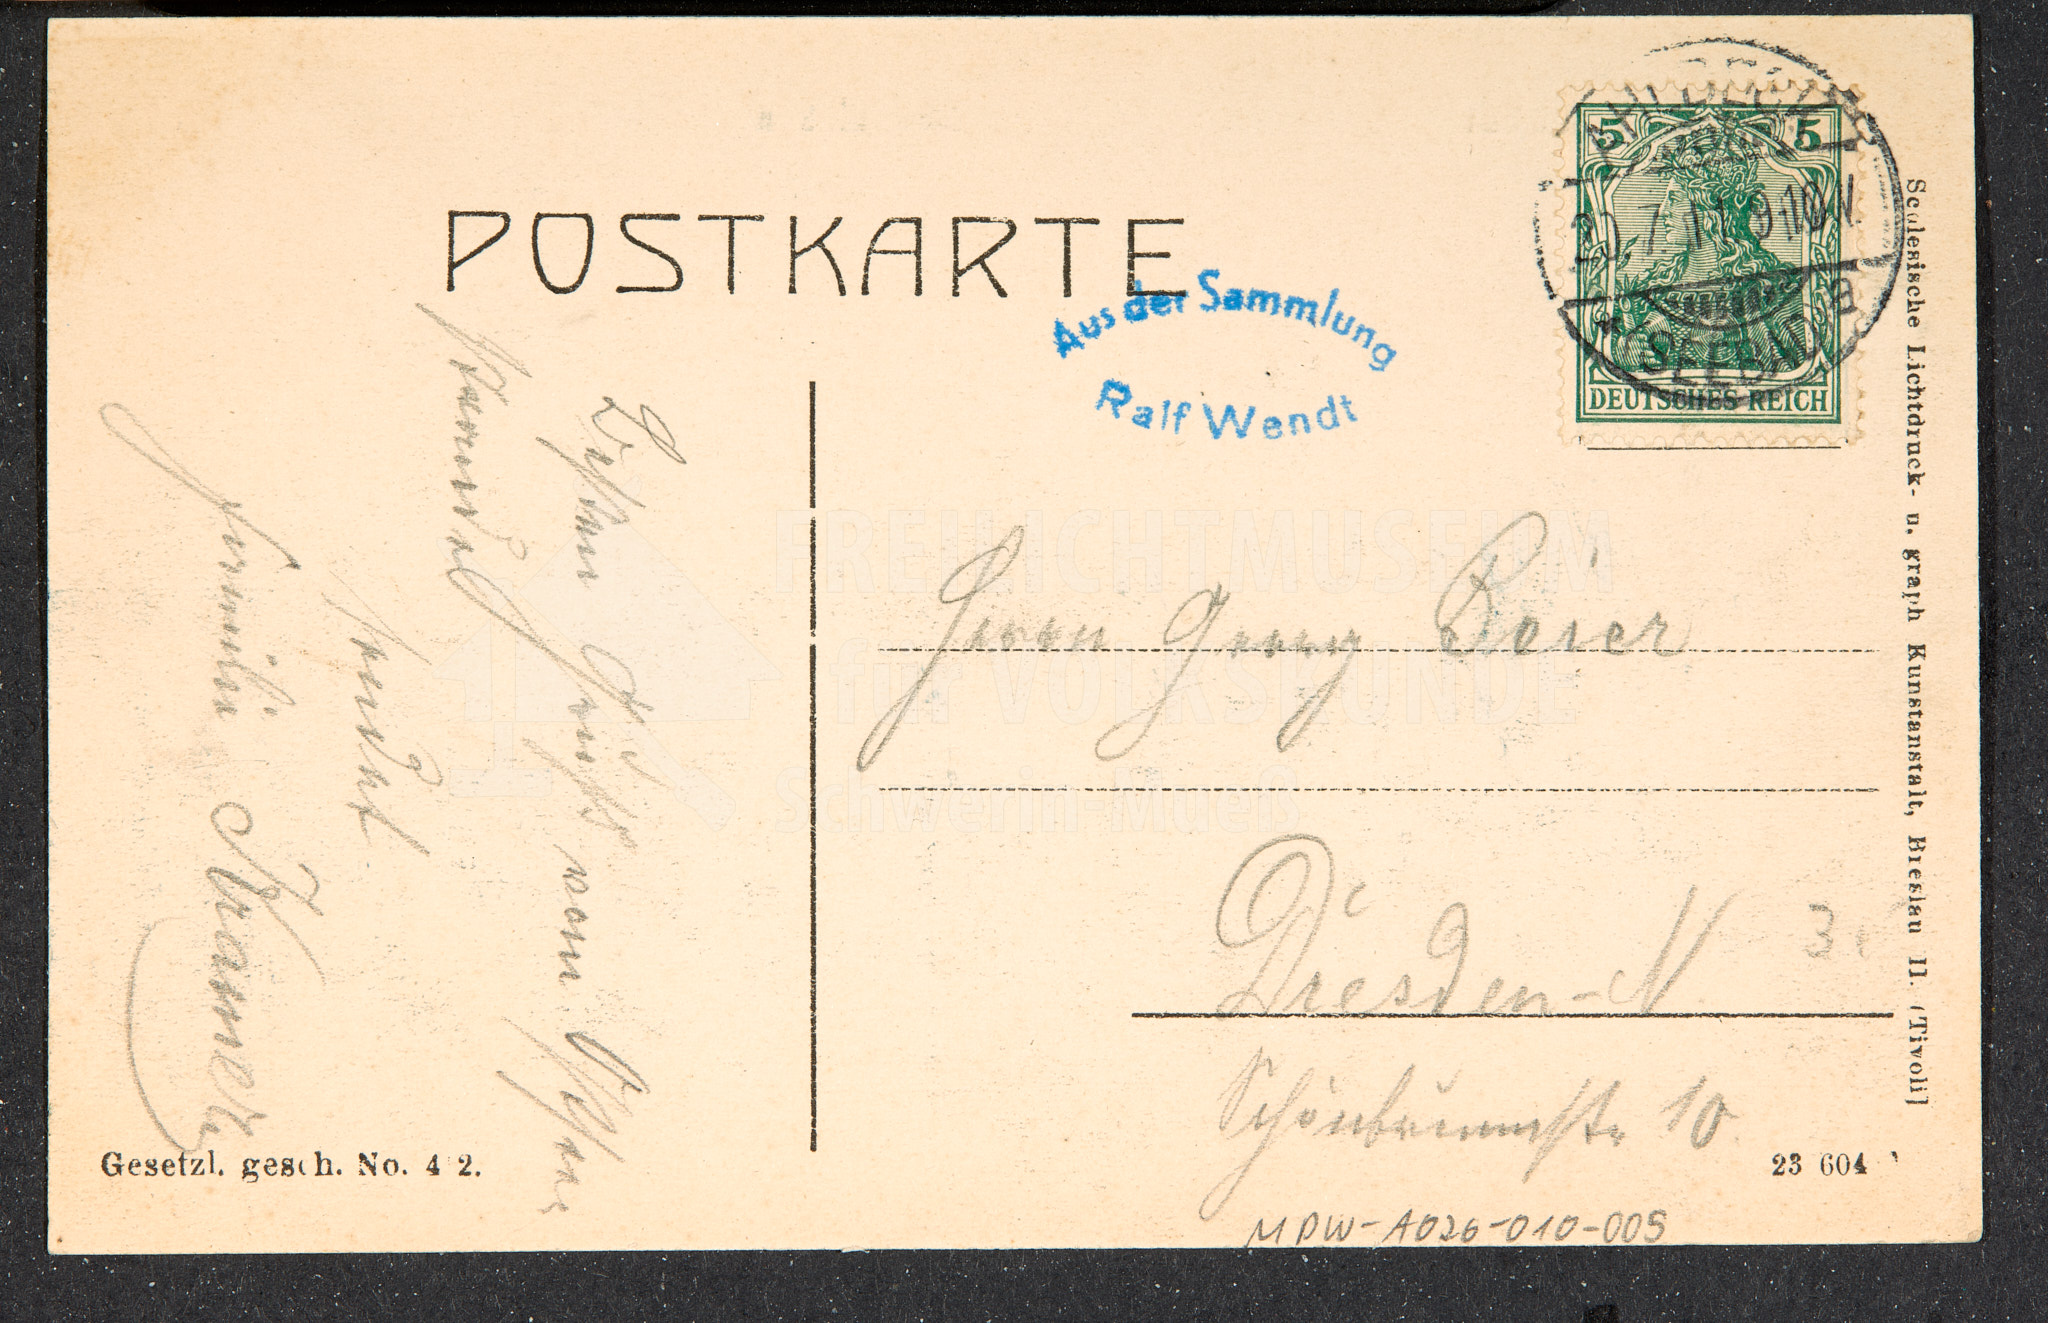 POSTKARTE
Aus der Sammlung
Ralf Wendt
5 5
AHLBECK
20.7.11 9-10V.
(SEEBAD) a
DEUTSCHES REICH
Herrn Georg Beier
Dresden-N. 3.
Schönbrunnstr. 10.
Besten Gruß vom
sendet
Familie Kramer
Schlesische Lichtdruck- u. graph Kunstanstalt, Breslau II. (Tivoli]
Gesetzl. gesch. No. 4 2.
23 604
MDW-A026-010-005
FREILICHTMUSEUM
für VOLKSKUNDE
Schwerin-Mueß